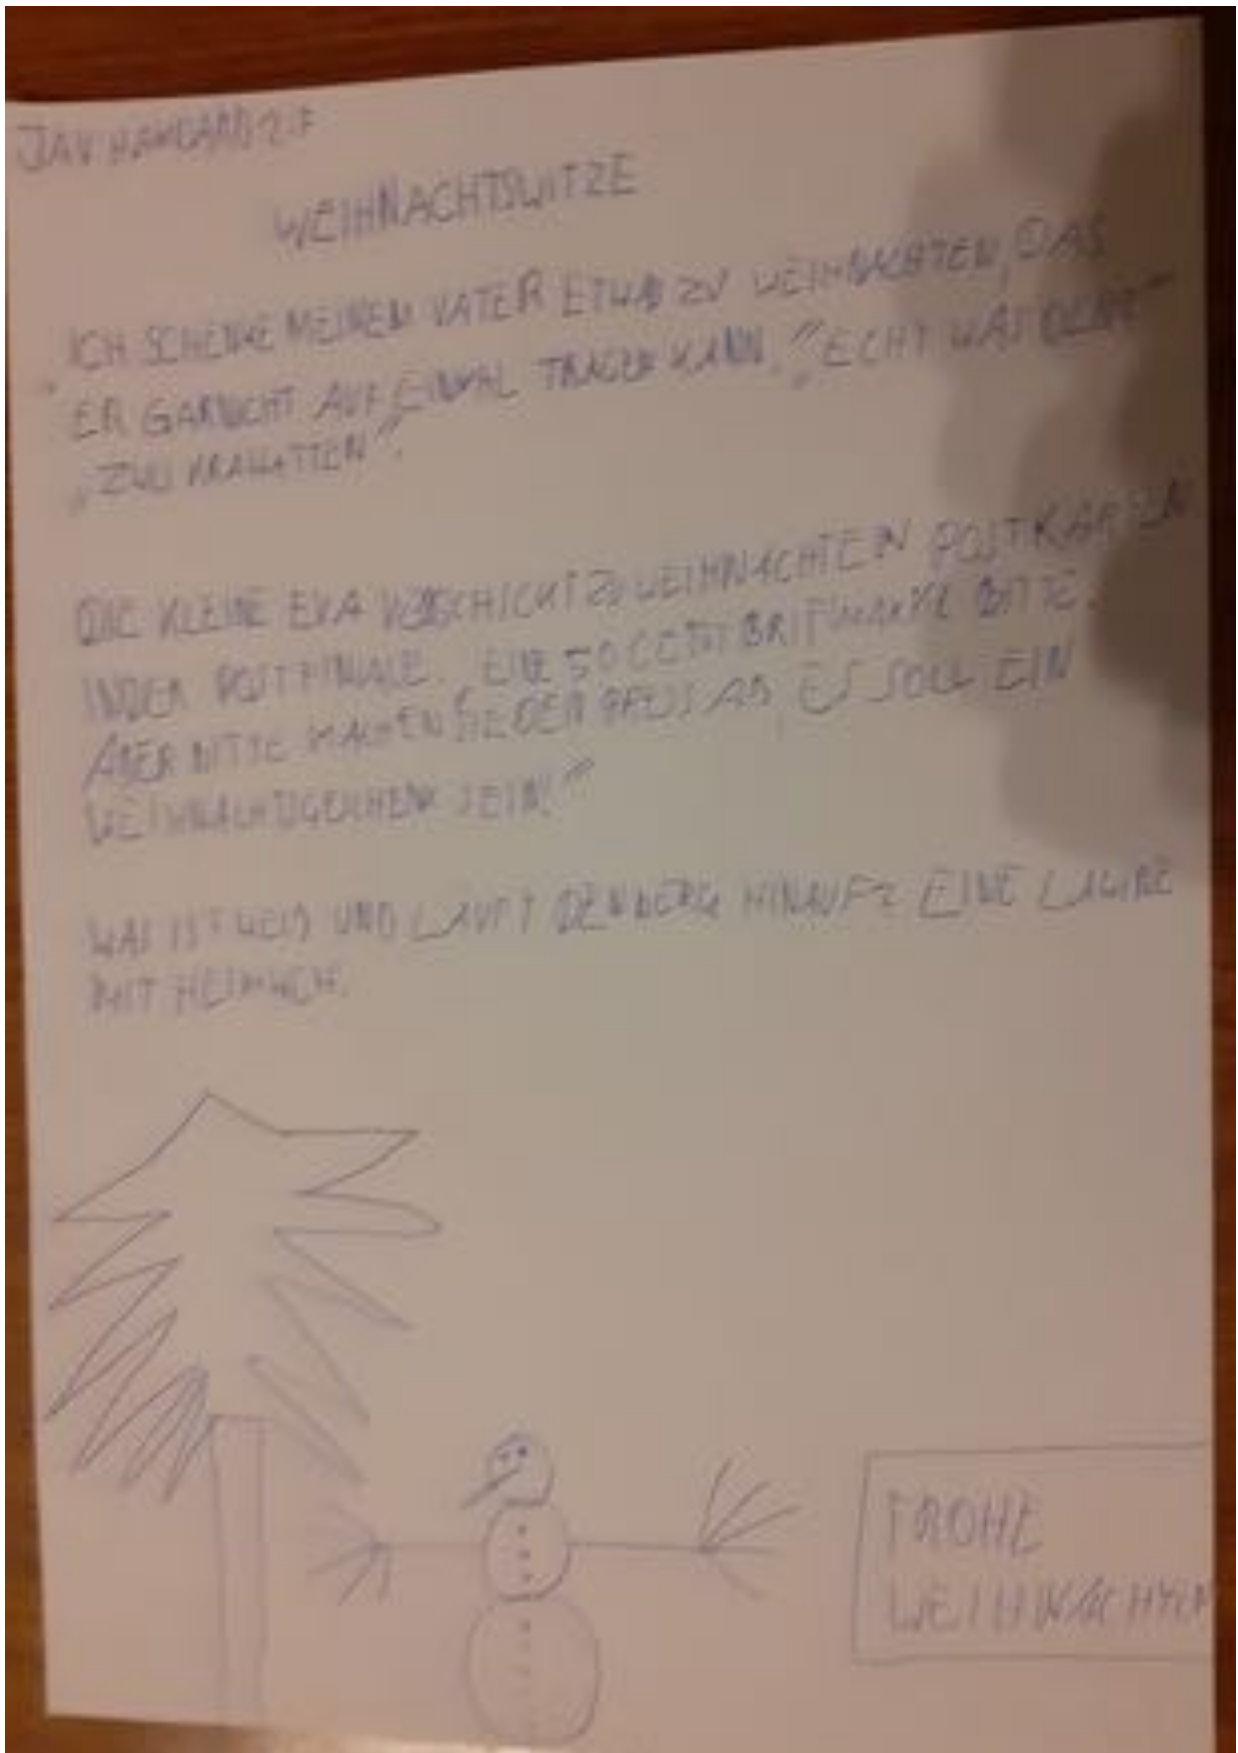 JAN
WEIHNACHTSWITZE
"ICH SCHENKE MEINEM VATER ETWAS ZU WEIHNACHTEN, DAS
ER GARNICHT AUF EINMAL TRAGEN KANN." "ECHT WAS DENN"
"ZWEI KRAWATTEN".
DIE KLEINE EVA VERSCHICKT ZU WEIHNACHTEN POSTKARTEN
IN DER POSTFILIALE. EINE 50 CENT BRIFMARKE BITTE.
ABER BITTE MACHEN SIE DEN PREIS AB, ES SOLL EIN
WEIHNACHTSGESCHENK SEIN!"
WAS IST WEIS UND LAUFT DEN BERG HINAUF? EINE LAWINE
MIT HEIMWEH.
FROHE
WEIHNACHTEN